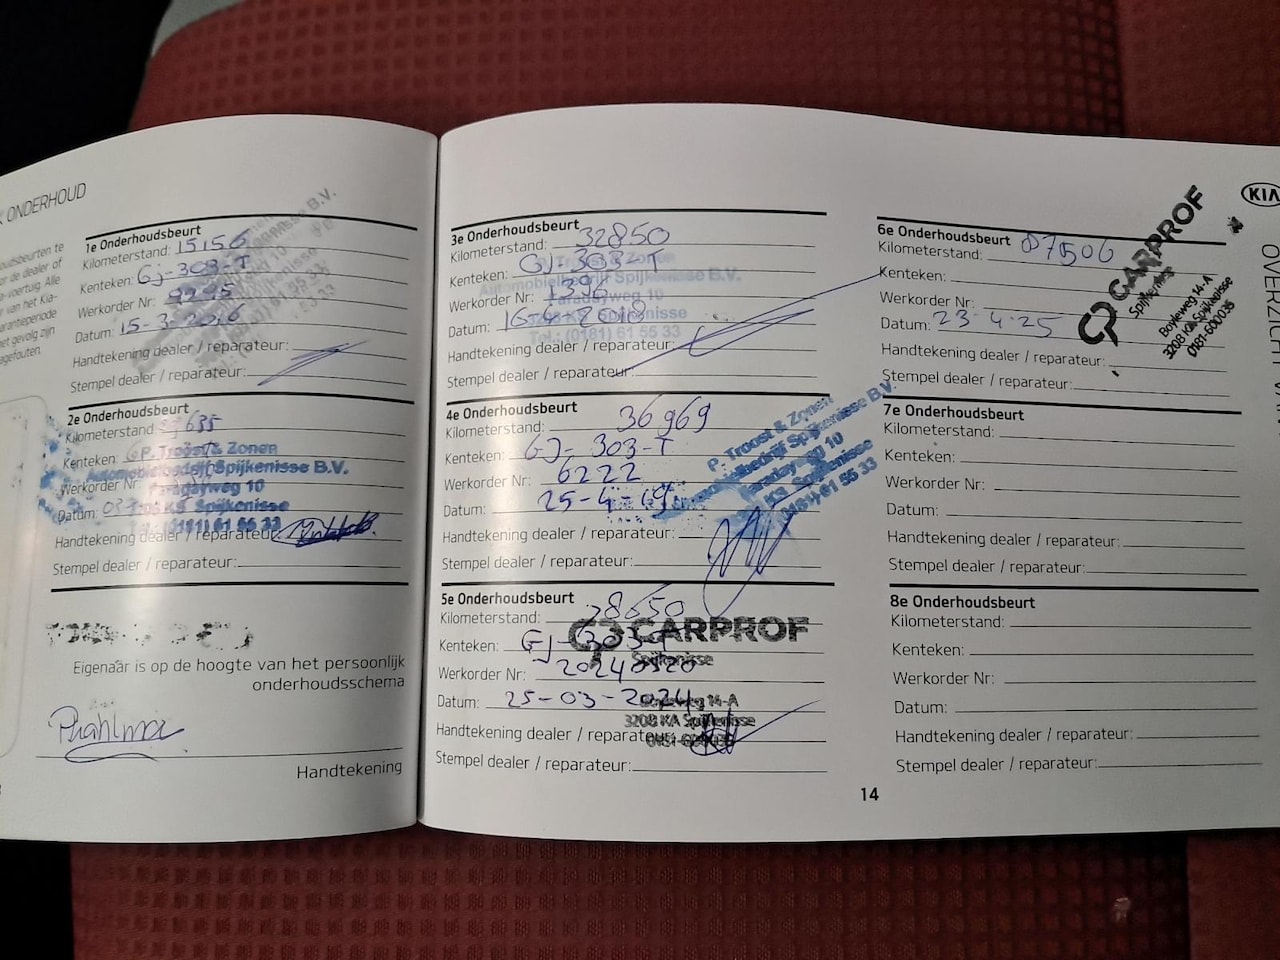 K ONDERHOUD
oudsbeurten te
or de dealer of
a-voertuig. Alle
van het Kia-
arantieperiode
net gevolg zijn
agefouten.
1e Onderhoudsbeurt
Kilometerstand: 15156
Kenteken: GJ-303-T
Werkorder Nr:
Datum: 15-3-2016
Handtekening dealer / reparateur:
Stempel dealer / reparateur:
2e Onderhoudsbeurt
Kilometerstand
Kenteken:
P. Troost & Zonen
Automobielbedrijf Spijkenisse B.V.
Werkorder Nr:
Paradayweg 10
Datum:
KS Spijkenisse
(0181) 61 55 33
Handtekening dealer / reparateur:
Stempel dealer / reparateur:
Eigenaar is op de hoogte van het persoonlijk
onderhoudsschema
Handtekening
3e Onderhoudsbeurt
Kilometerstand: 32850
Kenteken: GJ-303-T
P. Troost & Zonen
Automobielbedrijf Spijkenisse B.V.
Werkorder Nr: 1396
Faradayweg 10
Datum:
Spijkenisse
Tel.: (0181) 61 55 33
Handtekening dealer / reparateur:
Stempel dealer / reparateur:
4e Onderhoudsbeurt
Kilometerstand: 36969
Kenteken: GJ-303-T
Werkorder Nr: 6222
Datum: 25-4-19
P. Troost & Zonen
Automobielbedrijf Spijkenisse B.V.
Faradayweg 10
Spijkenisse
(0181) 61 55 33
Handtekening dealer / reparateur:
Stempel dealer / reparateur:
5e Onderhoudsbeurt
Kilometerstand:
Kenteken: GJ-303-T
CARPROF
Spijkenisse
Werkorder Nr: 20240320
Datum: 25-03-2024
Boyleweg 14-A
3208 KA Spijkenisse
0181-600035
Handtekening dealer / reparateur:
Stempel dealer / reparateur:
14
KIA
OVERZICHT
6e Onderhoudsbeurt
Kilometerstand: 87506
Kenteken:
Werkorder Nr:
Datum: 23-4-25
CARPROF
Spijkenisse
Boyleweg 14-A
3208 KA Spijkenisse
0181-600035
Handtekening dealer / reparateur:
Stempel dealer / reparateur:
7e Onderhoudsbeurt
Kilometerstand:
Kenteken:
Werkorder Nr:
Datum:
Handtekening dealer / reparateur:
Stempel dealer / reparateur:
8e Onderhoudsbeurt
Kilometerstand:
Kenteken:
Werkorder Nr:
Datum:
Handtekening dealer / reparateur:
Stempel dealer / reparateur: